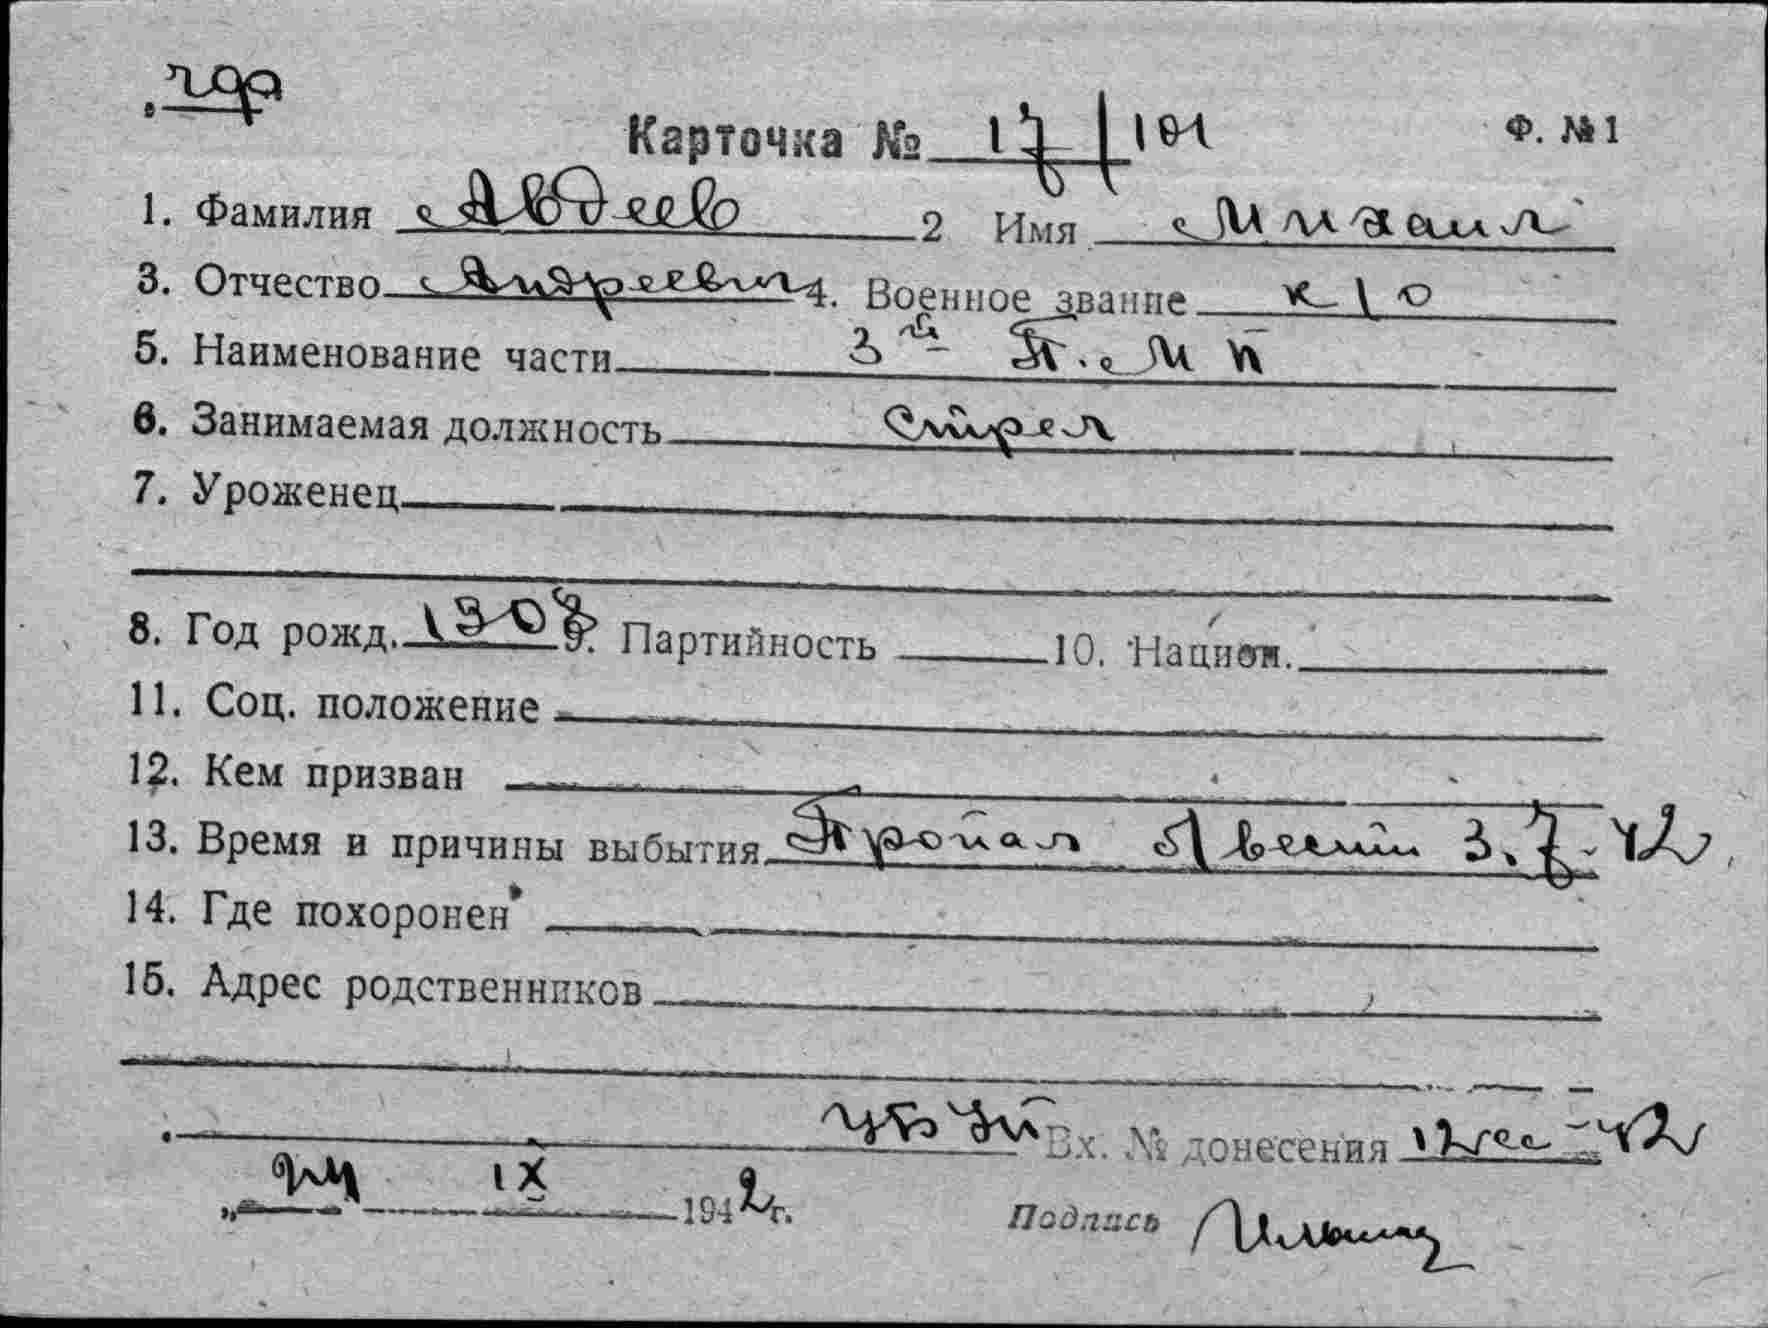 Карточка № 17/101 Ф. №1
1. Фамилия Авдеев 2 Имя Михаил
3. Отчество Андреевич 4. Военное звание к/о
5. Наименование части 3й П.МП
6. Занимаемая должность Стрел
7. Уроженец
8. Год рожд. 1907 9. Партийность 10. Национ.
11. Соц. положение
12. Кем призван
13. Время и причины выбытия Пропал б/вести 3.7.42
14. Где похоронен
15. Адрес родственников
Вх. № донесения
24 IX 1942 г. Подпись